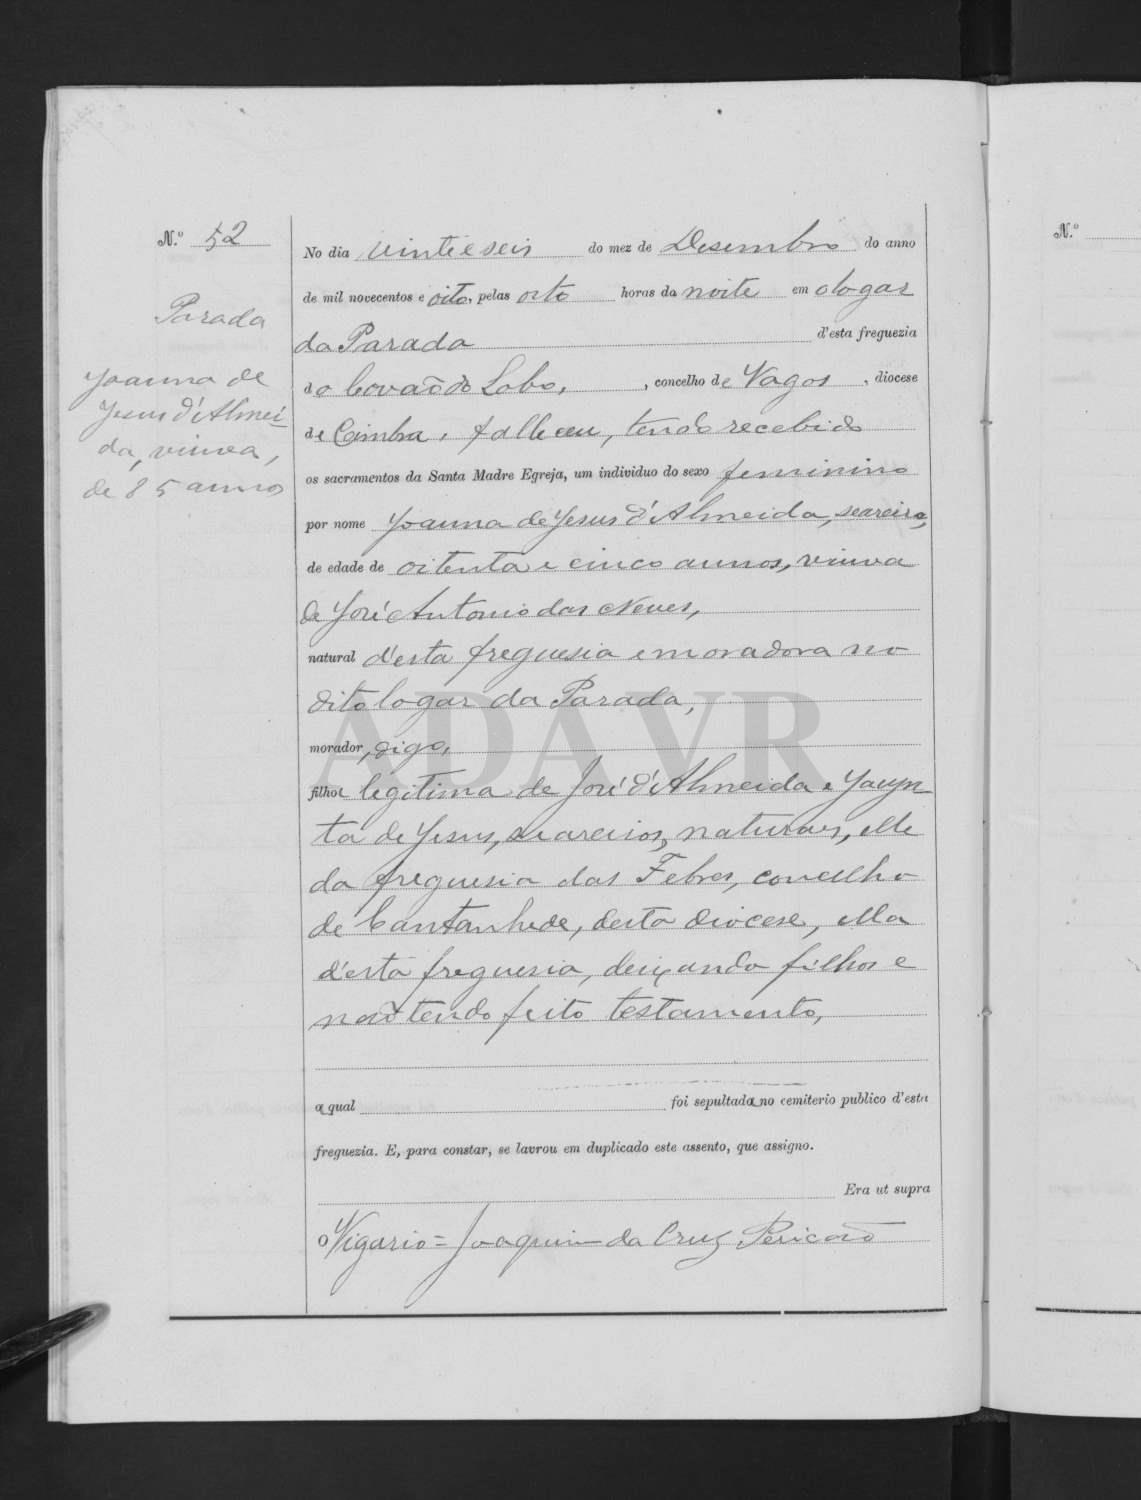 N.º 52
N.º
Parada
Joanna de
Jesus d'Almei-
da, viuva,
de 85 annos
No dia vinte e seis do mez de Desembro do anno
de mil novecentos e oito, pelas oito horas da noite em o logar
da Parada d'esta freguezia
do Covaõ do Lobo, , concelho de Vagos , diocese
de Coimbra, falleceu, tendo recebido
os sacramentos da Santa Madre Egreja, um individuo do sexo feminino
por nome Joanna de Jesus d'Almeida, seareira,
de edade de oitenta e cinco annos, viuva
de José Antonio das Neves,
natural d'esta freguesia e moradora no
dito logar da Parada,
morador, digo,
filha legitima de José d'Almeida e Jacyn-
ta de Jesus, seareiros, naturaes, elle
da freguesia das Febres, concelho
de Cantanhede, desta diocese, ella
d'esta freguesia, deixando filhos e
naõ tendo feito testamento,
a qual foi sepultada no cemiterio publico d'esta
freguezia. E, para constar, se lavrou em duplicado este assento, que assigno.
Era ut supra
O Vigario = Joaquim da Cruz Pericaõ
ADAVR